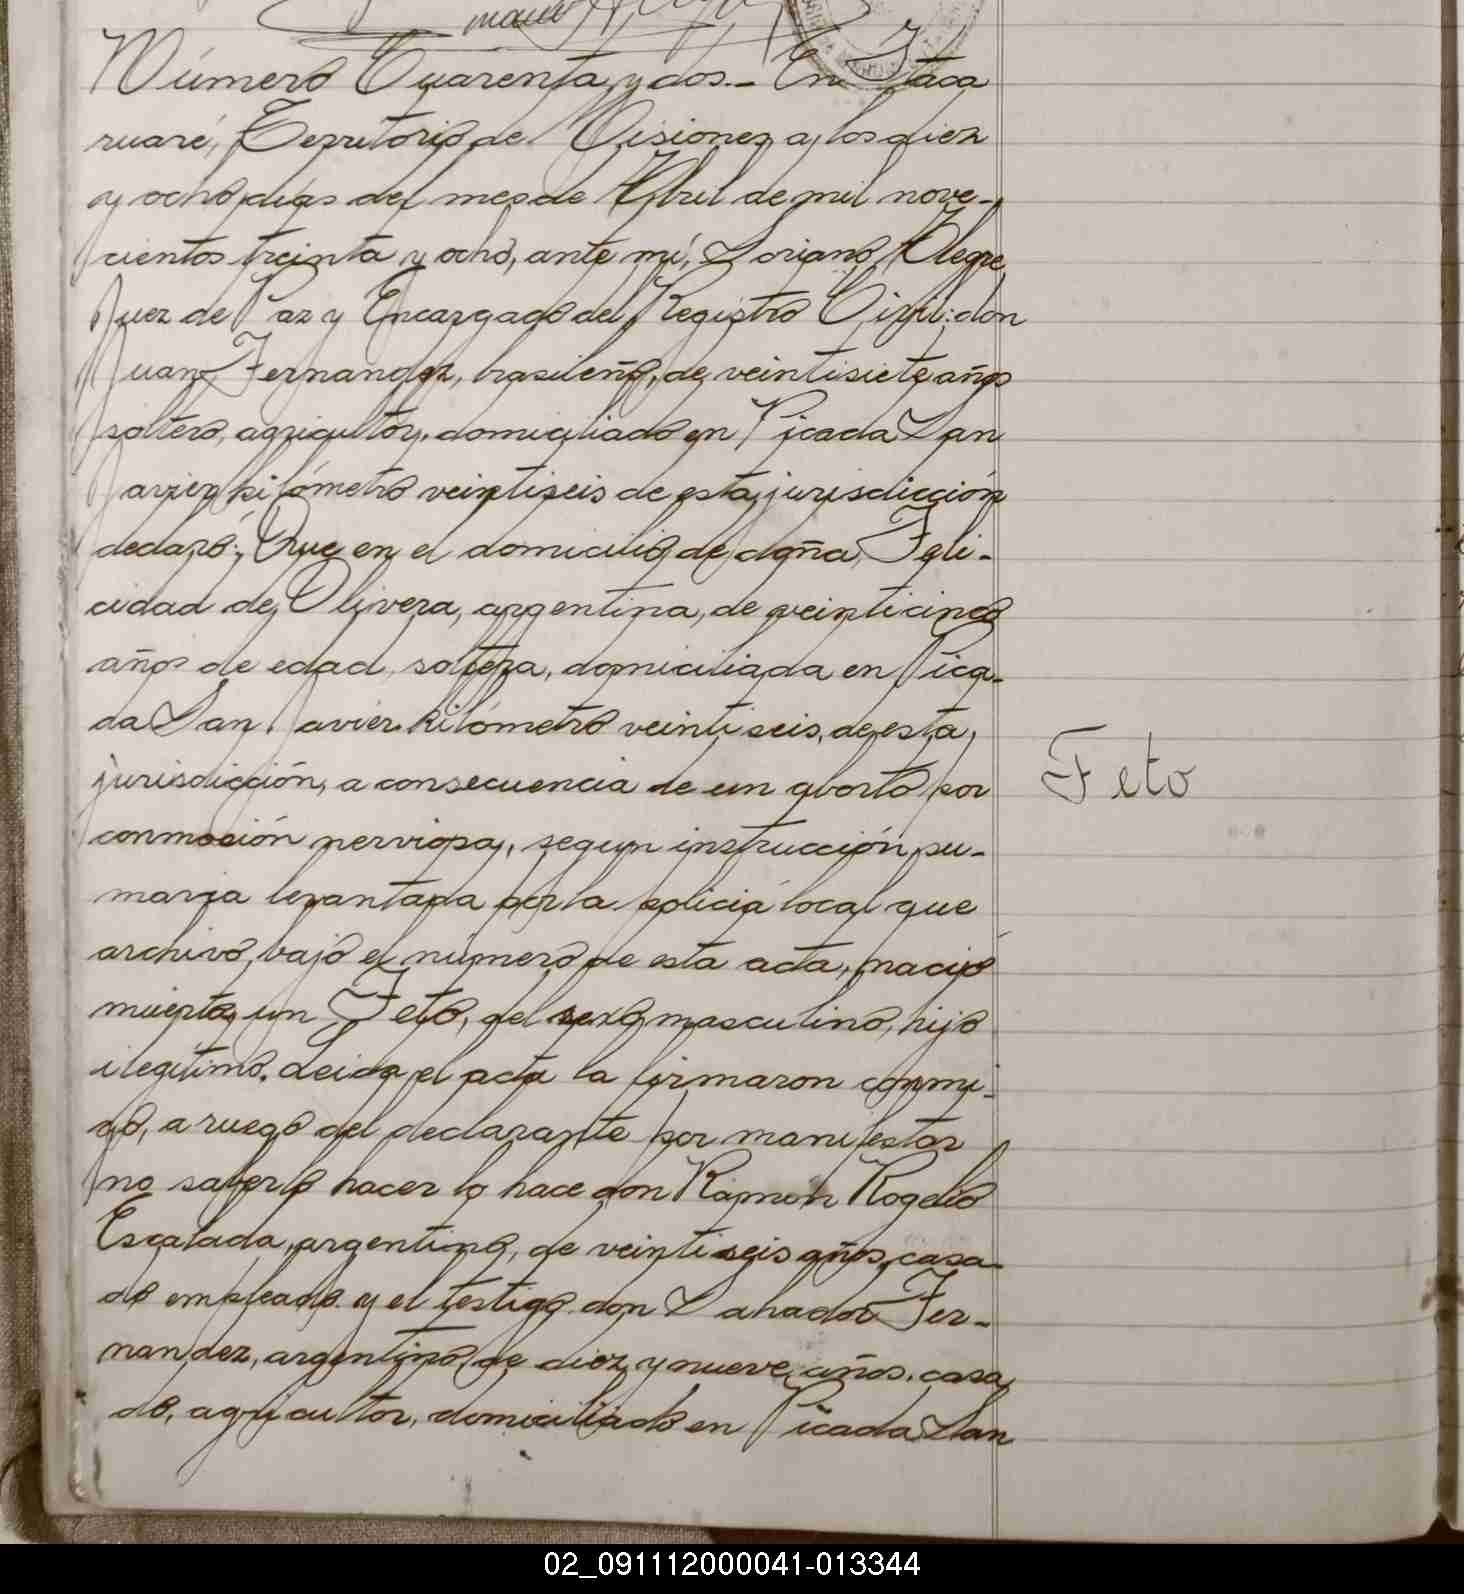 Número Cuarenta y dos.- En Itaca
ruaré, Territorio de Misiones, a los diez
y ocho dias del mes de Abril de mil nove-
cientos treinta y ocho, ante mí, Soriano Alegre
Juez de Paz y Encargado del Registro Civil: don
Juan Fernandez, brasileño, de veintisiete años
soltero, agricultor, domiciliado en Picada San
Javier kilómetro veintiseis de esta jurisdicción
declaró: Que en el domicilio de doña Feli-
cidad de Olivera, argentina, de veinticinco
años de edad, soltera, domiciliada en Pica-
da San Javier kilómetro veintiseis, de esta
jurisdicción, a consecuencia de un aborto por
conmoción nerviosa, segun instrucción su-
maria levantada por la policia local que
archivo, bajo el número de esta acta, nació
muerto, un Feto, del sexo masculino, hijo
ilegitimo. Leida el acta la firmaron conmi-
go, a ruego del declarante por manifestar
no saberlo hacer lo hace don Ramon Rogelio
Escalada, argentino, de veintiseis años, casa-
do empleado y el testigo don Fer-
nandez, argentino, de diez y nueve años, casa
do, agricultor, domiciliado en Picada San
Feto
02_091112000041-013344